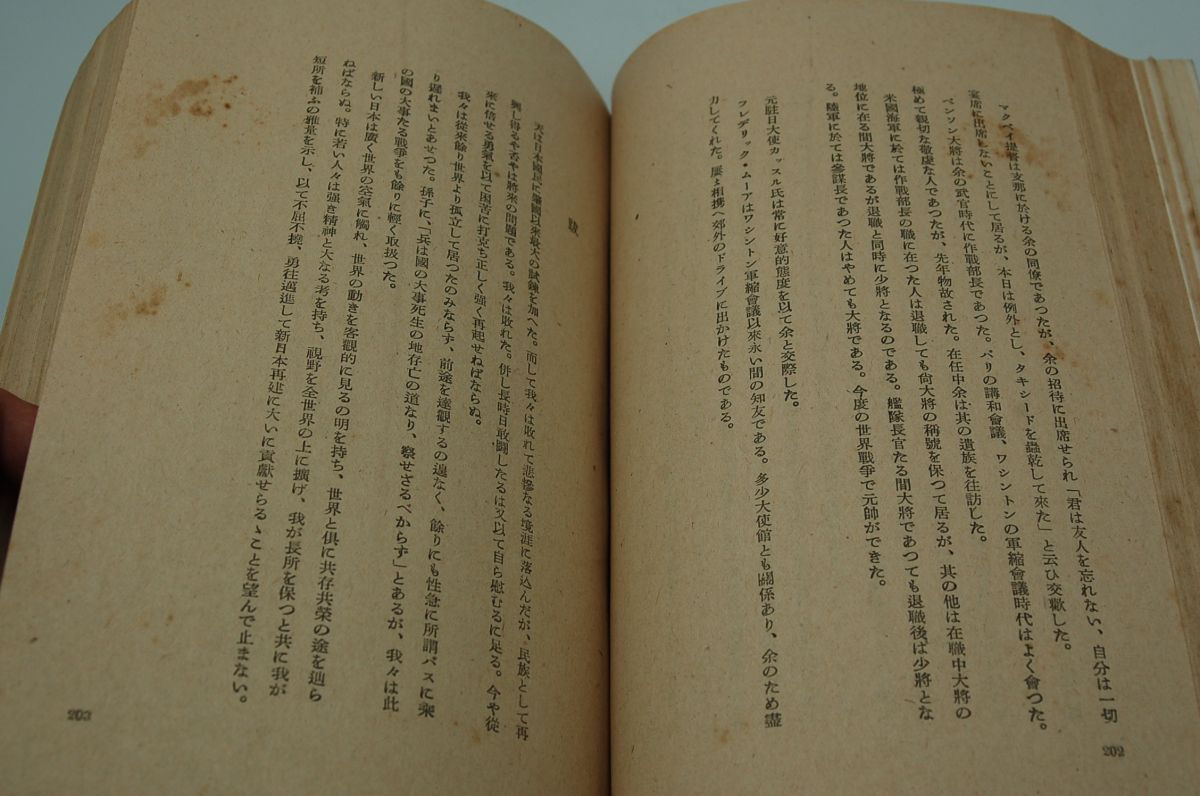 マクベイ提督は支那に於ける余の同僚であつたが、余の招待に出席せられ「君は友人を忘れない、自分は一切
宴席に出席しないことにして居るが、本日は例外とし、タキシードを蟲乾して來た」と云ひ交歡した。
ベンソン大將は余の武官時代に作戰部長であつた。パリの講和會議、ワシントンの軍縮會議時代はよく會つた。
極めて親切な敬虔な人であつたが、先年物故された。在任中余は其の遺族を往訪した。
米國海軍に於ては作戰部長の職に在つた人は退職しても尙大將の稱號を保つて居るが、其の他は在職中大將の
地位に在る間大將であるが退職と同時に少將となるのである。艦隊長官たる間大將であつても退職後は少將とな
る。陸軍に於ては參謀長であつた人はやめても大將である。今度の世界戰爭で元帥ができた。
元駐日大使カッスル氏は常に好意的態度を以て余と交際した。
フレデリック・ムーアはワシントン軍縮會議以來永い間の知友である。多少大使館とも關係あり、余のため盡
力してくれた。屢〻相携へ郊外のドライブに出かけたものである。
202
跋
天は日本國民に肇國以來最大の試鍊を加へた。而して我々は敗れて悲慘なる境涯に落込んだが、民族として再
興し得るや否やは將來の問題である。我々は敗れた。併し長時日敢鬪したるは又以て自ら慰むるに足る。今や從
來に倍せる勇氣を以て困苦に打克ち正しく强く再起せねばならぬ。
我々は從來餘り世界より孤立して居つたのみならず、前途を達觀するの遑なく、餘りにも性急に所謂バスに乘
り遲れまいとあせつた。孫子に、「兵は國の大事死生の地存亡の道なり、察せざるべからず」とあるが、我々は此
の國の大事たる戰爭をも餘りに輕く取扱つた。
新しい日本は廣く世界の空氣に觸れ、世界の動きを客觀的に見るの明を持ち、世界と俱に共存共榮の途を辿ら
ねばならぬ。特に若い人々は强き精神と大なる考を持ち、視野を全世界の上に擴げ、我が長所を保つと共に我が
短所を補ふの雅量を示し、以て不屈不撓、勇往邁進して新日本再建に大いに貢獻せらるゝことを望んで止まない。
203